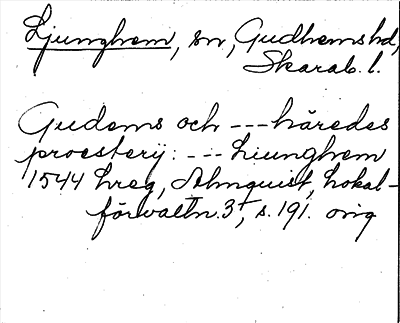 Ljunghem, sn, Gudhems hd,
Skarab. l.
Gudems och --- häredes
proesterij: --- Liunghem
1544 Lreg, Almquist, Lokal-
förvaltn. 3, s. 191. orig